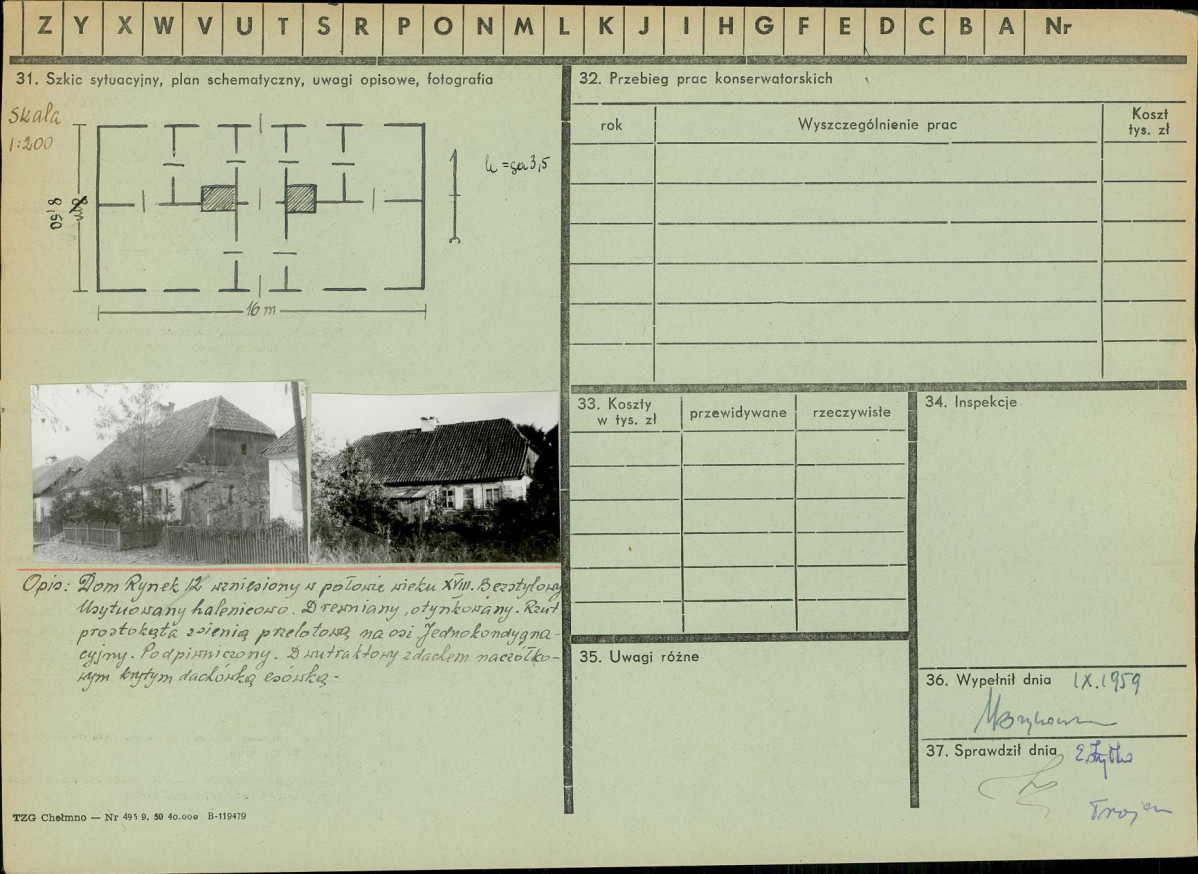 Z Y X W V U T S R P O N M L K J I H G F E D C B A Nr
31. Szkic sytuacyjny, plan schematyczny, uwagi opisowe, fotografia
Skala
1:200
8,50
16 m
h = ga 3,5
Opis: Dom Rynek 12 wzniesiony w połowie wieku XVIII. Bezstylowy
Usytuowany kalenicowo. Drewniany, otynkowany. Rzut
prostokąta z sienią przelotową na osi Jednokondygna-
cyjny. Podpiwniczony. Dwutraktowy z dachem naczółko-
wym krytym dachówką esówką.
TZG Chełmno — Nr 495 9. 50 40.000 B-119479
32. Przebieg prac konserwatorskich
rok
Wyszczególnienie prac
Koszt
tys. zł
33. Koszty
w tys. zł
przewidywane
rzeczywiste
34. Inspekcje
35. Uwagi różne
36. Wypełnił dnia IX.1959
37. Sprawdził dnia